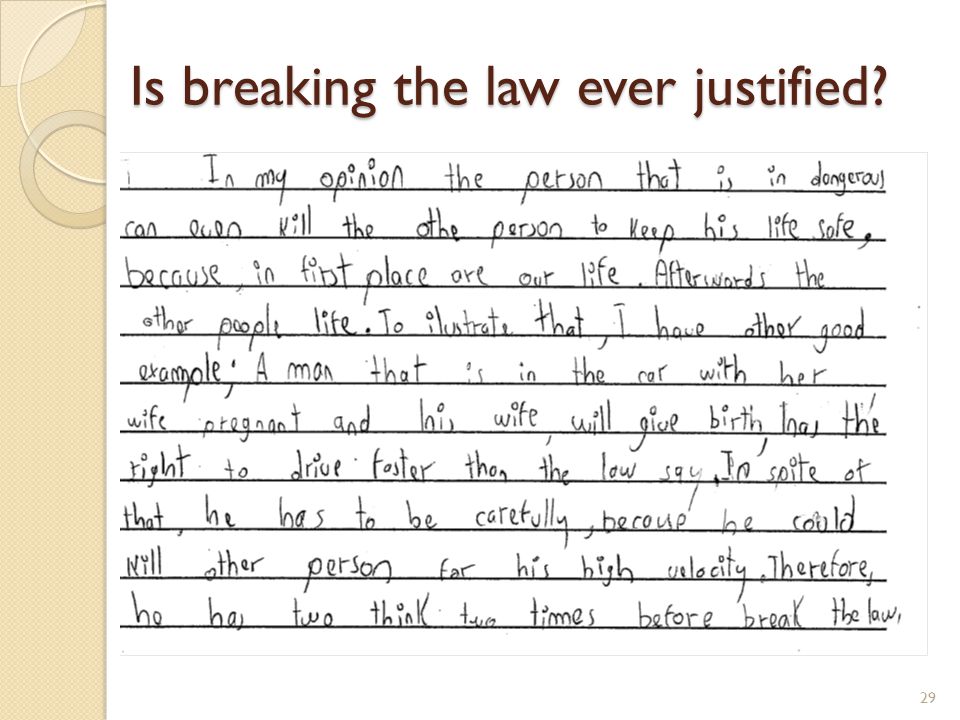 Is breaking the law ever justified?
In my opinion the person that is in dangerous
can even kill the othe person to keep his life safe,
because, in first place are our life. Afterwards the
other people life. To ilustrate that, I have other good
example; A man that is in the car with her
wife pregnant and his wife, will give birth, has the
right to drive faster than the law say. In spite of
that, he has to be carefully, becouse he could
kill other person for his high velocity. Therefore,
he has two think two times before break the law.
29